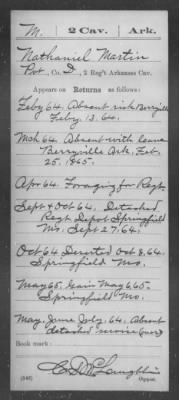 M. 2 Cav. Ark.
Nathaniel Martin
Pvt, Co. D, 2 Reg't Arkansas Cav.
Appears on Returns as follows:
Feby 64. Absent sick Berryville
Feby. 13. 64.
Mch 64. Absent with leave
Berryville Ark. Feb.
25. 1865.
Apr 64. Foraging for Regt.
Sept & Oct 64. Detached
Regt. Depot Springfield
Mo. Sept 27, 64.
Oct 64 Deserted Oct 8, 64.
Springfield Mo.
May 65. Gain May 6 65.
Springfield Mo.
May, June, July, 64. Absent
detached service
Book mark:
(546) Copyist.